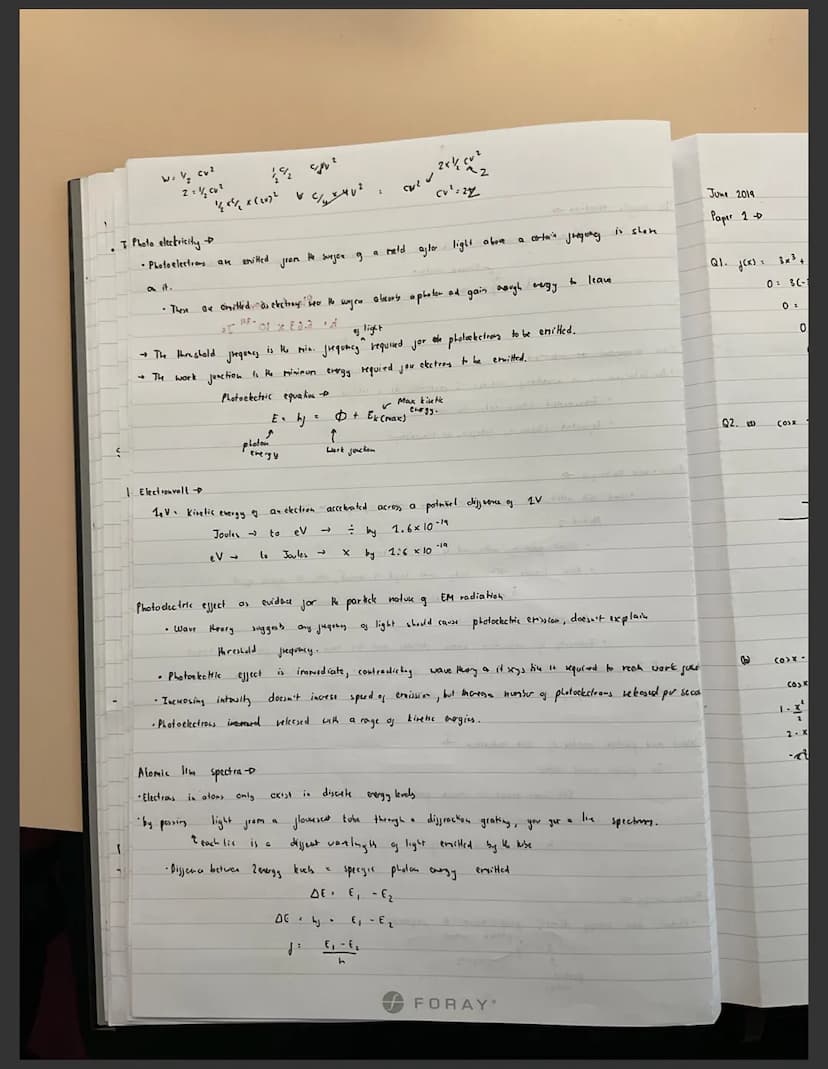 W = 1/2 CV²
2 = 1/2 CV²
1/2 C/2
C/4V²
1/2 x C/2 x (2V)²
C/4 x 4V² =
CV²
2x 1/2 CV²
2
CV² = 2Z
Photoelectricity →
• Photoelectrons are emitted from the surface of a metal after light above a certain frequency is shone
on it.
• These are emitted as electrons near the surface absorb a photon and gain enough energy to leave
of light
→ The threshold frequency is the min. frequency required for photoelectrons to be emitted.
→ The work function is the minimum energy required for electrons to be emitted.
Photoelectric equation →
E = hf = Φ + Ek(max)
Max kinetic
energy.
photon
energy
Work function
Electronvolt →
1eV = Kinetic energy of an electron accelerated across a potential difference of 1V
Joules → to eV → ÷ by 1.6 x 10⁻¹⁹
eV → to Joules → x by 1.6 x 10⁻¹⁹
Photoelectric effect as evidence for the particle nature of EM radiation
• Wave theory suggests any frequency of light should cause photoelectric emission, doesn't explain
threshold frequency.
• Photoelectric effect is immediate, contradicting wave theory as it says time is required to reach work func
• Increasing intensity doesn't increase speed of emission, but increases number of photoelectrons released per seco
• Photoelectrons released with a range of kinetic energies.
Atomic line spectra →
• Electrons in atoms only exist in discrete energy levels
• by passing light from a flourescent tube through a diffraction grating, you get a line spectrum.
↑ each line is a different wavelength of light emitted by the tube
• Difference between 2 energy levels = specific photon energy emitted
ΔE = E₁ - E₂
ΔE = hf = E₁ - E₂
f = E₁ - E₂
h
FORAY
June 2019
Paper 2 →
Q1. f(x) = 3x³ +
0 = 3(-
0 =
0
Q2. (a) cosx
(b) cosx -
cosx
1 - x²
2
2 - x
-x²